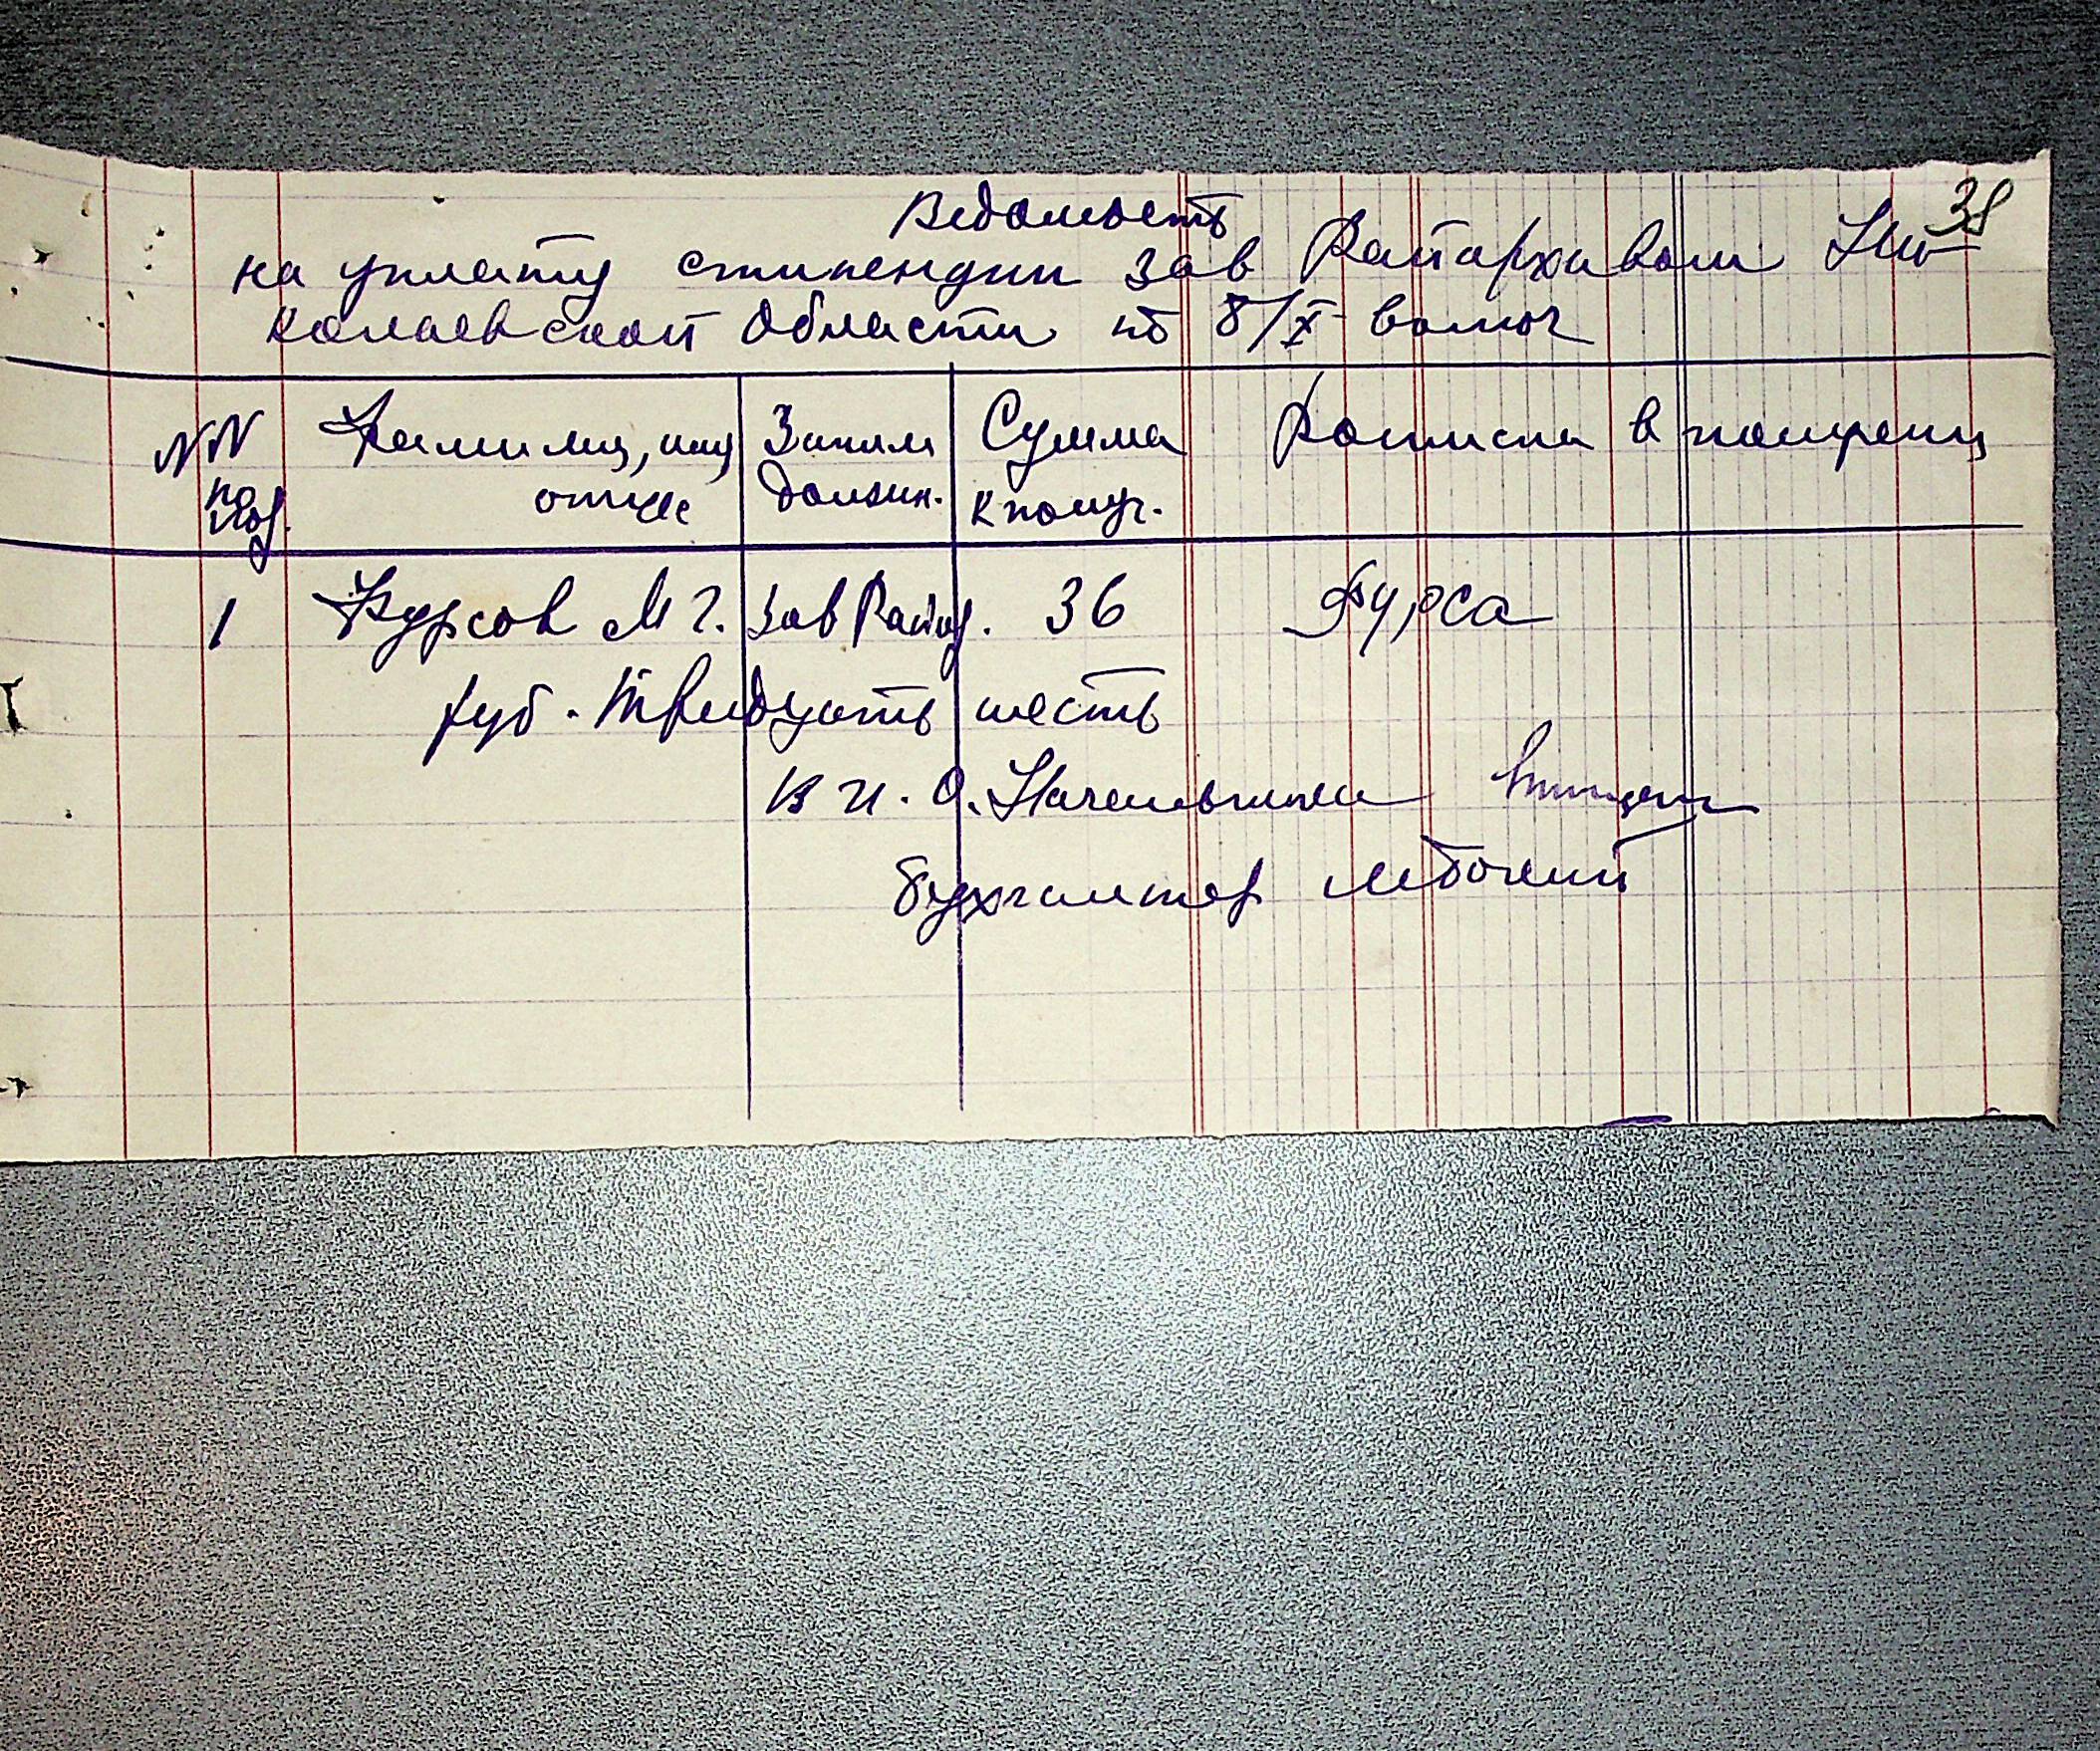 38
Ведомость
на уплату стипендии зав Райархивом Ни-
колаевской области по 8/X включ
NN по пор. Фамилия, имя отчес Заним должн. Сумма к получ. Расписка в получении
1 Фурсов М Г. Зав Райар. 36 Фурсо
руб. Тридцать шесть
В И. О. Начальника
бухгалтер